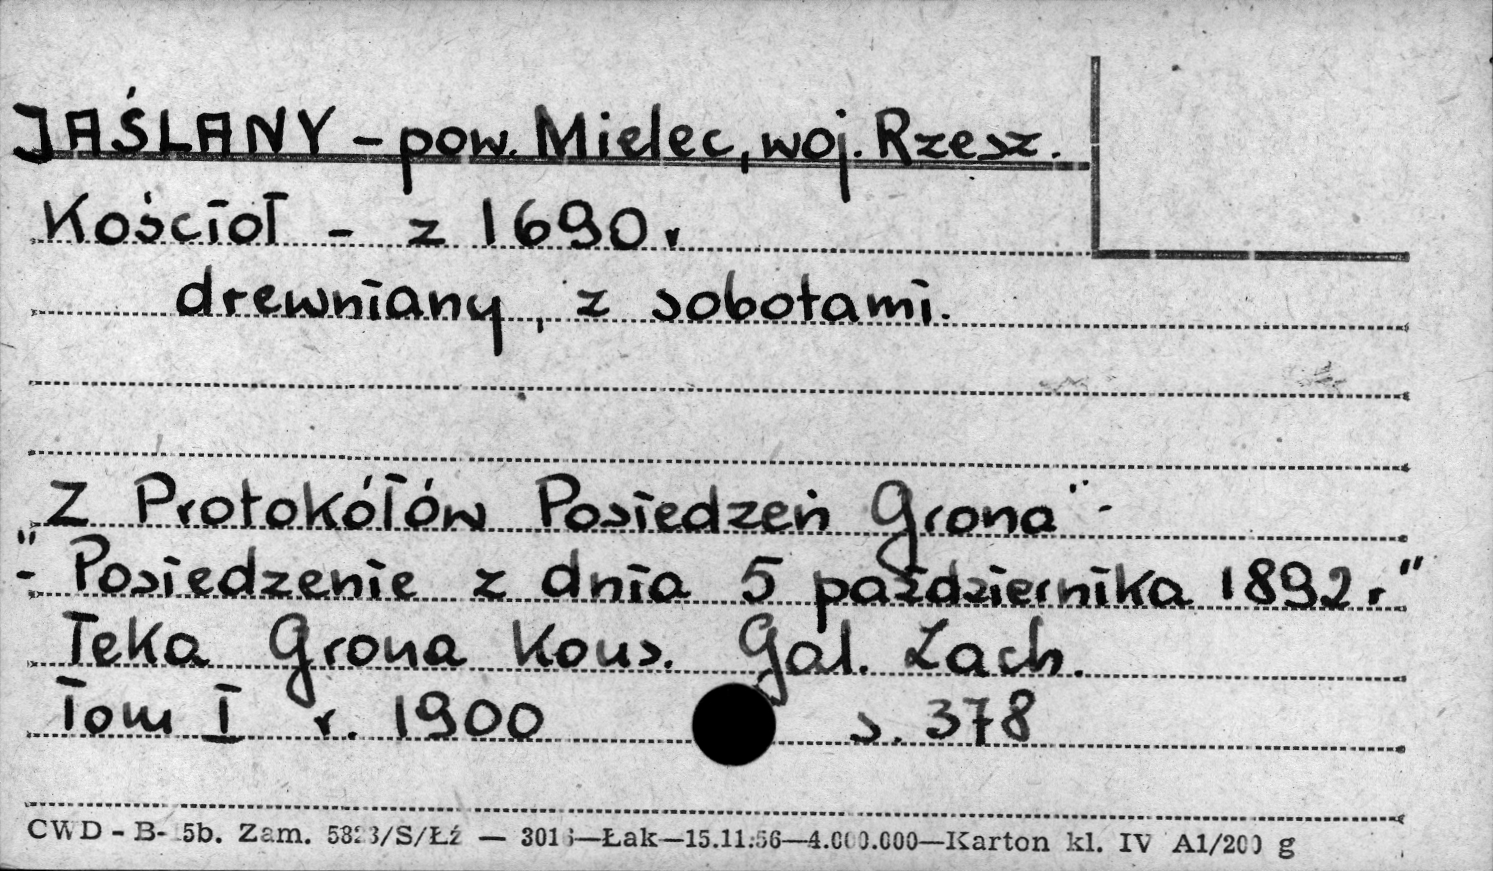 JAŚLANY - pow. Mielec, woj. Rzesz.
Kościoł - z 1690 r
drewniany, z sobotami.
Z Protokółów Posiedzeń Grona" -
"- Posiedzenie z dnia 5 października 1892 r"
Teka Grona Kons. Gal. Zach.
Tom I r. 1900 s. 378
CWD - B- 5b. Zam. 5823/S/Łź — 3016—Łak—15.11.56—4.000.000—Karton kl. IV A1/200 g